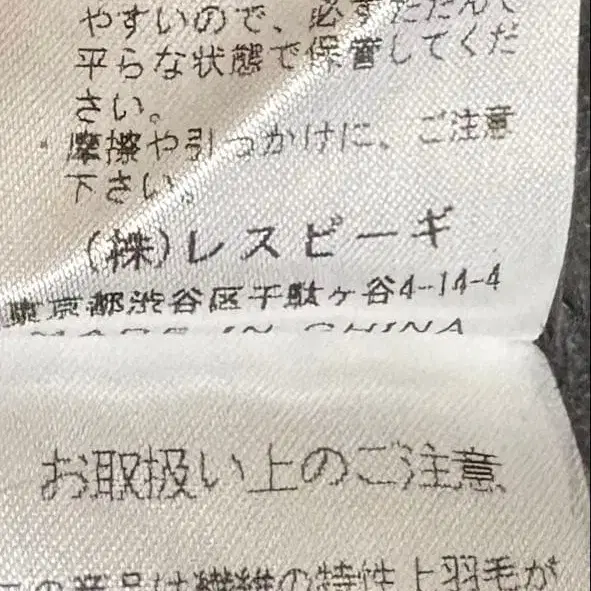 やすいので、必ずたたんで
平らな状態で保管してくだ
さい。
・摩擦や引っかけに、ご注意
下さい。
(株)レスピーギ
東京都渋谷区千駄ヶ谷4-14-4
MADE IN CHINA
お取扱い上のご注意
この商品は繊維の特性上羽毛が